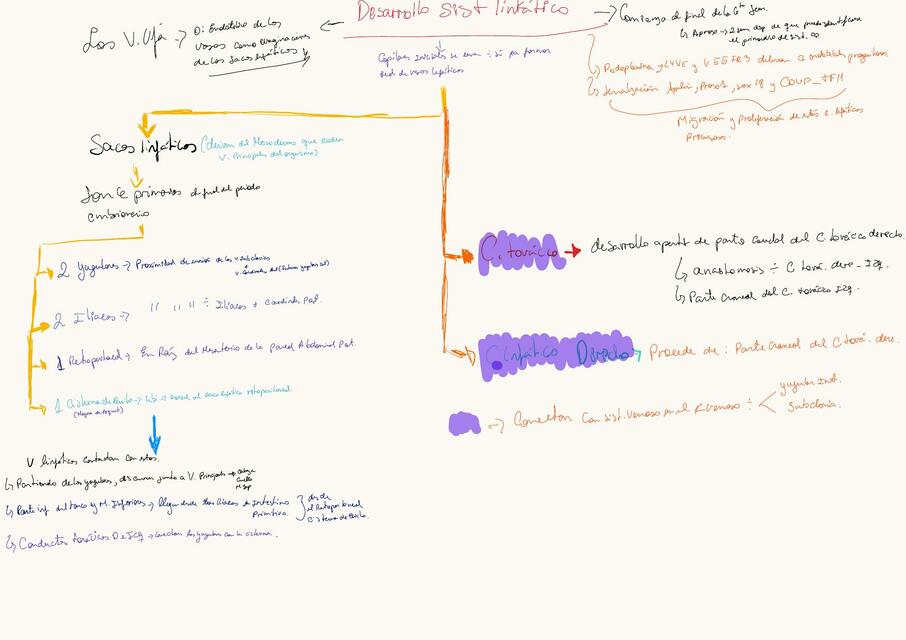 Desarrollo sist linfático
Los V. → D: Endotelio de los
vasos como
de los sacos linfáticos
Comienza al final de la 6ta sem.
Aprox → 2 sem dsp de que puede identificarse
el primordio de sist.
Capilares Iniciales se unen ÷ sí pa formar
red de vasos linfáticos
Podoplanina y LYVE y VEGFR3 derivan a endoteliales progenitoras
Señalización Apelin, Prox-1, sox 18 y COUP_TFII
Migración y Proliferación de estos c. linfáticos
Precursores.
Sacos linfáticos (derivan del Mesodermo que rodea
V. Principales del organismo)
Son 6 primarios al final del periodo
embrionario
2 Yugulares → Proximidad de unión de las v. subclavias
+
2 Ilíacos → " " " ÷ Ilíacas + Cardinales Pot.
1 Retroperitoneal → En Raíz del Mesenterio de la Pared Abdominal Pot.
1 Cisterna de Quilo → dorsal al saco linfático retroperitoneal
V linfáticos contactan con estos.
Partiendo de los yugulares, discurren junto a V. Principales → cabeza
Cuello
M. Sup
Parte inf del tronco y M. Inferiores → Llegan desde los ilíacos e Intestino
Primitivo
desde
el Retroperitoneal
Cisterna de Quilo.
Conductos torácicos D e Izq → conectan los yugulares con la cisterna.
C. torácico → desarrollo apartir de parte caudal del C. torácico derecho.
anastomosis ÷ C torá. dere - Izq.
Parte craneal del C. torácico Izq.
C. linfático Derecho → Procede de: Parte craneal del C torá. dere.
→ Conectan Con sist. venoso en el ∡ venoso ÷
yugular Int.
Subclavia.